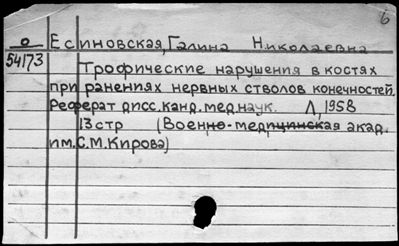 6
о Есиновская, Галина Николаевна
54173
Трофические нарушения в костях
при ранениях нервных стволов конечностей.
Реферат дисс. канд. мед. наук. Л, 1958
13 стр (Военно-медицинская акад.
им. С. М. Кирова)